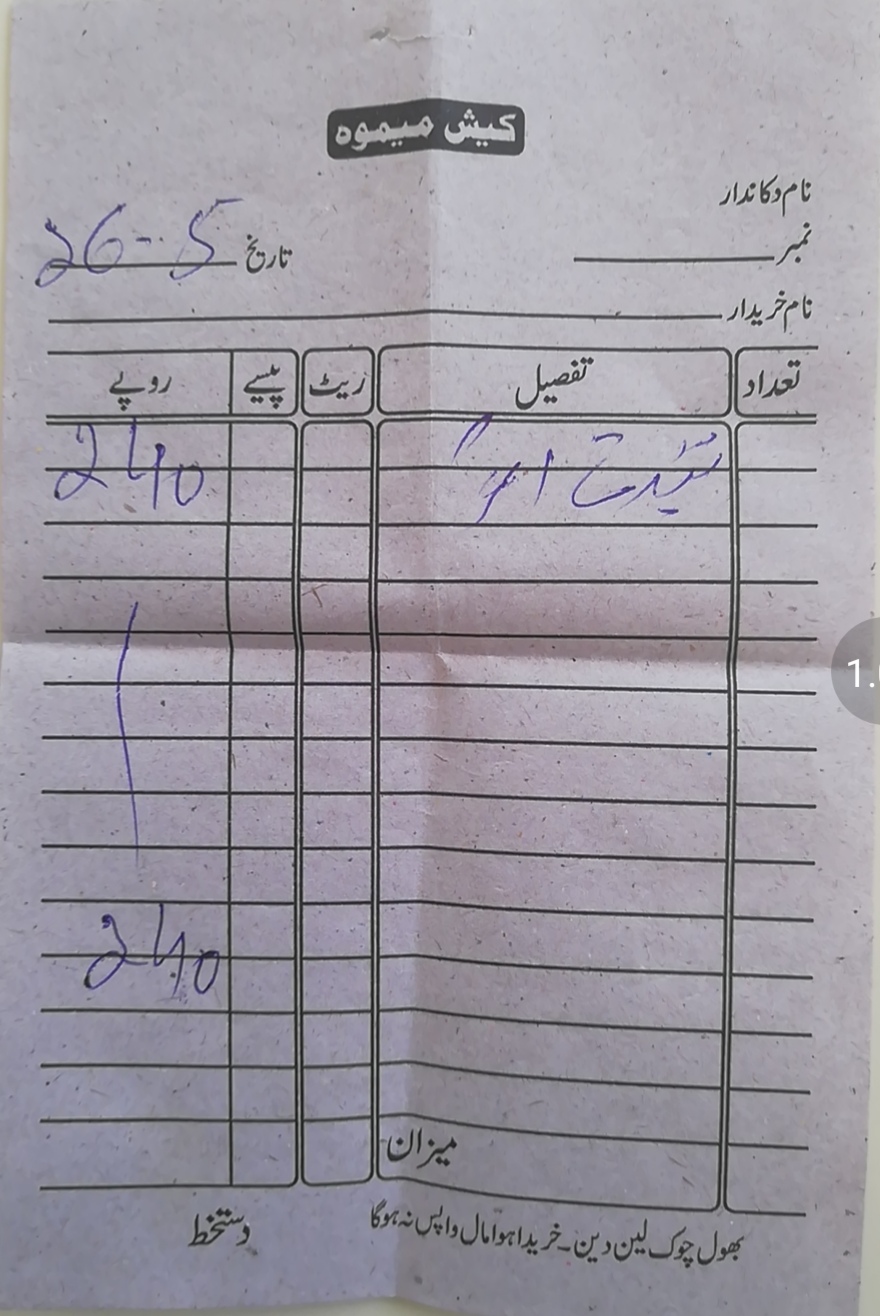 کیش میمو
نام دکاندار
نمبر
تاریخ 26-5
نام خریدار
تعداد تفصیل ریٹ پیسے روپے
240
240
میزان
بھول چوک لین دین۔ خریدا ہوا مال واپس نہ ہوگا
دستخط